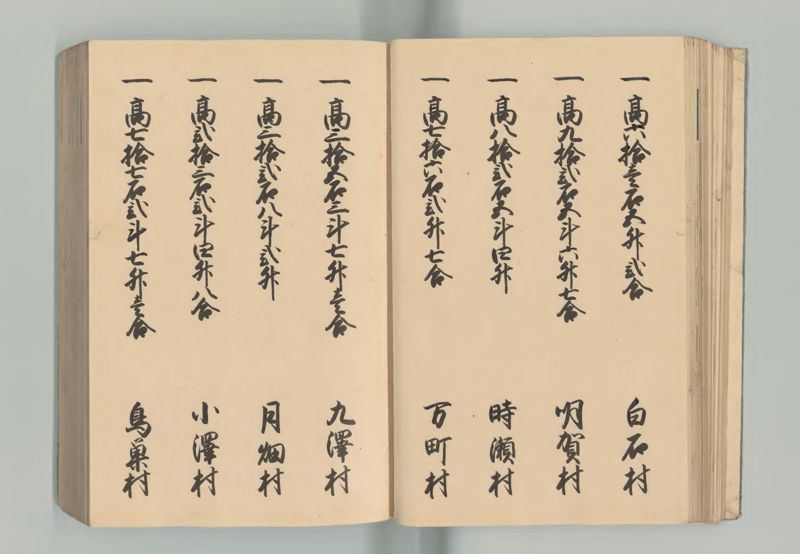 一 高六拾壱石五升弐合 白石村
一 高九拾弐石五斗六升七合 明賀村
一 高八拾弐石五斗四升 時瀬村
一 高七拾六石弐升七合 万町村
一 高三拾五石三斗七升壱合 九澤村
一 高三拾弐石八斗弐升 月畑村
一 高弐拾三石弐斗四升八合 小澤村
一 高七拾七石弐斗七升壱合 鳥巣村